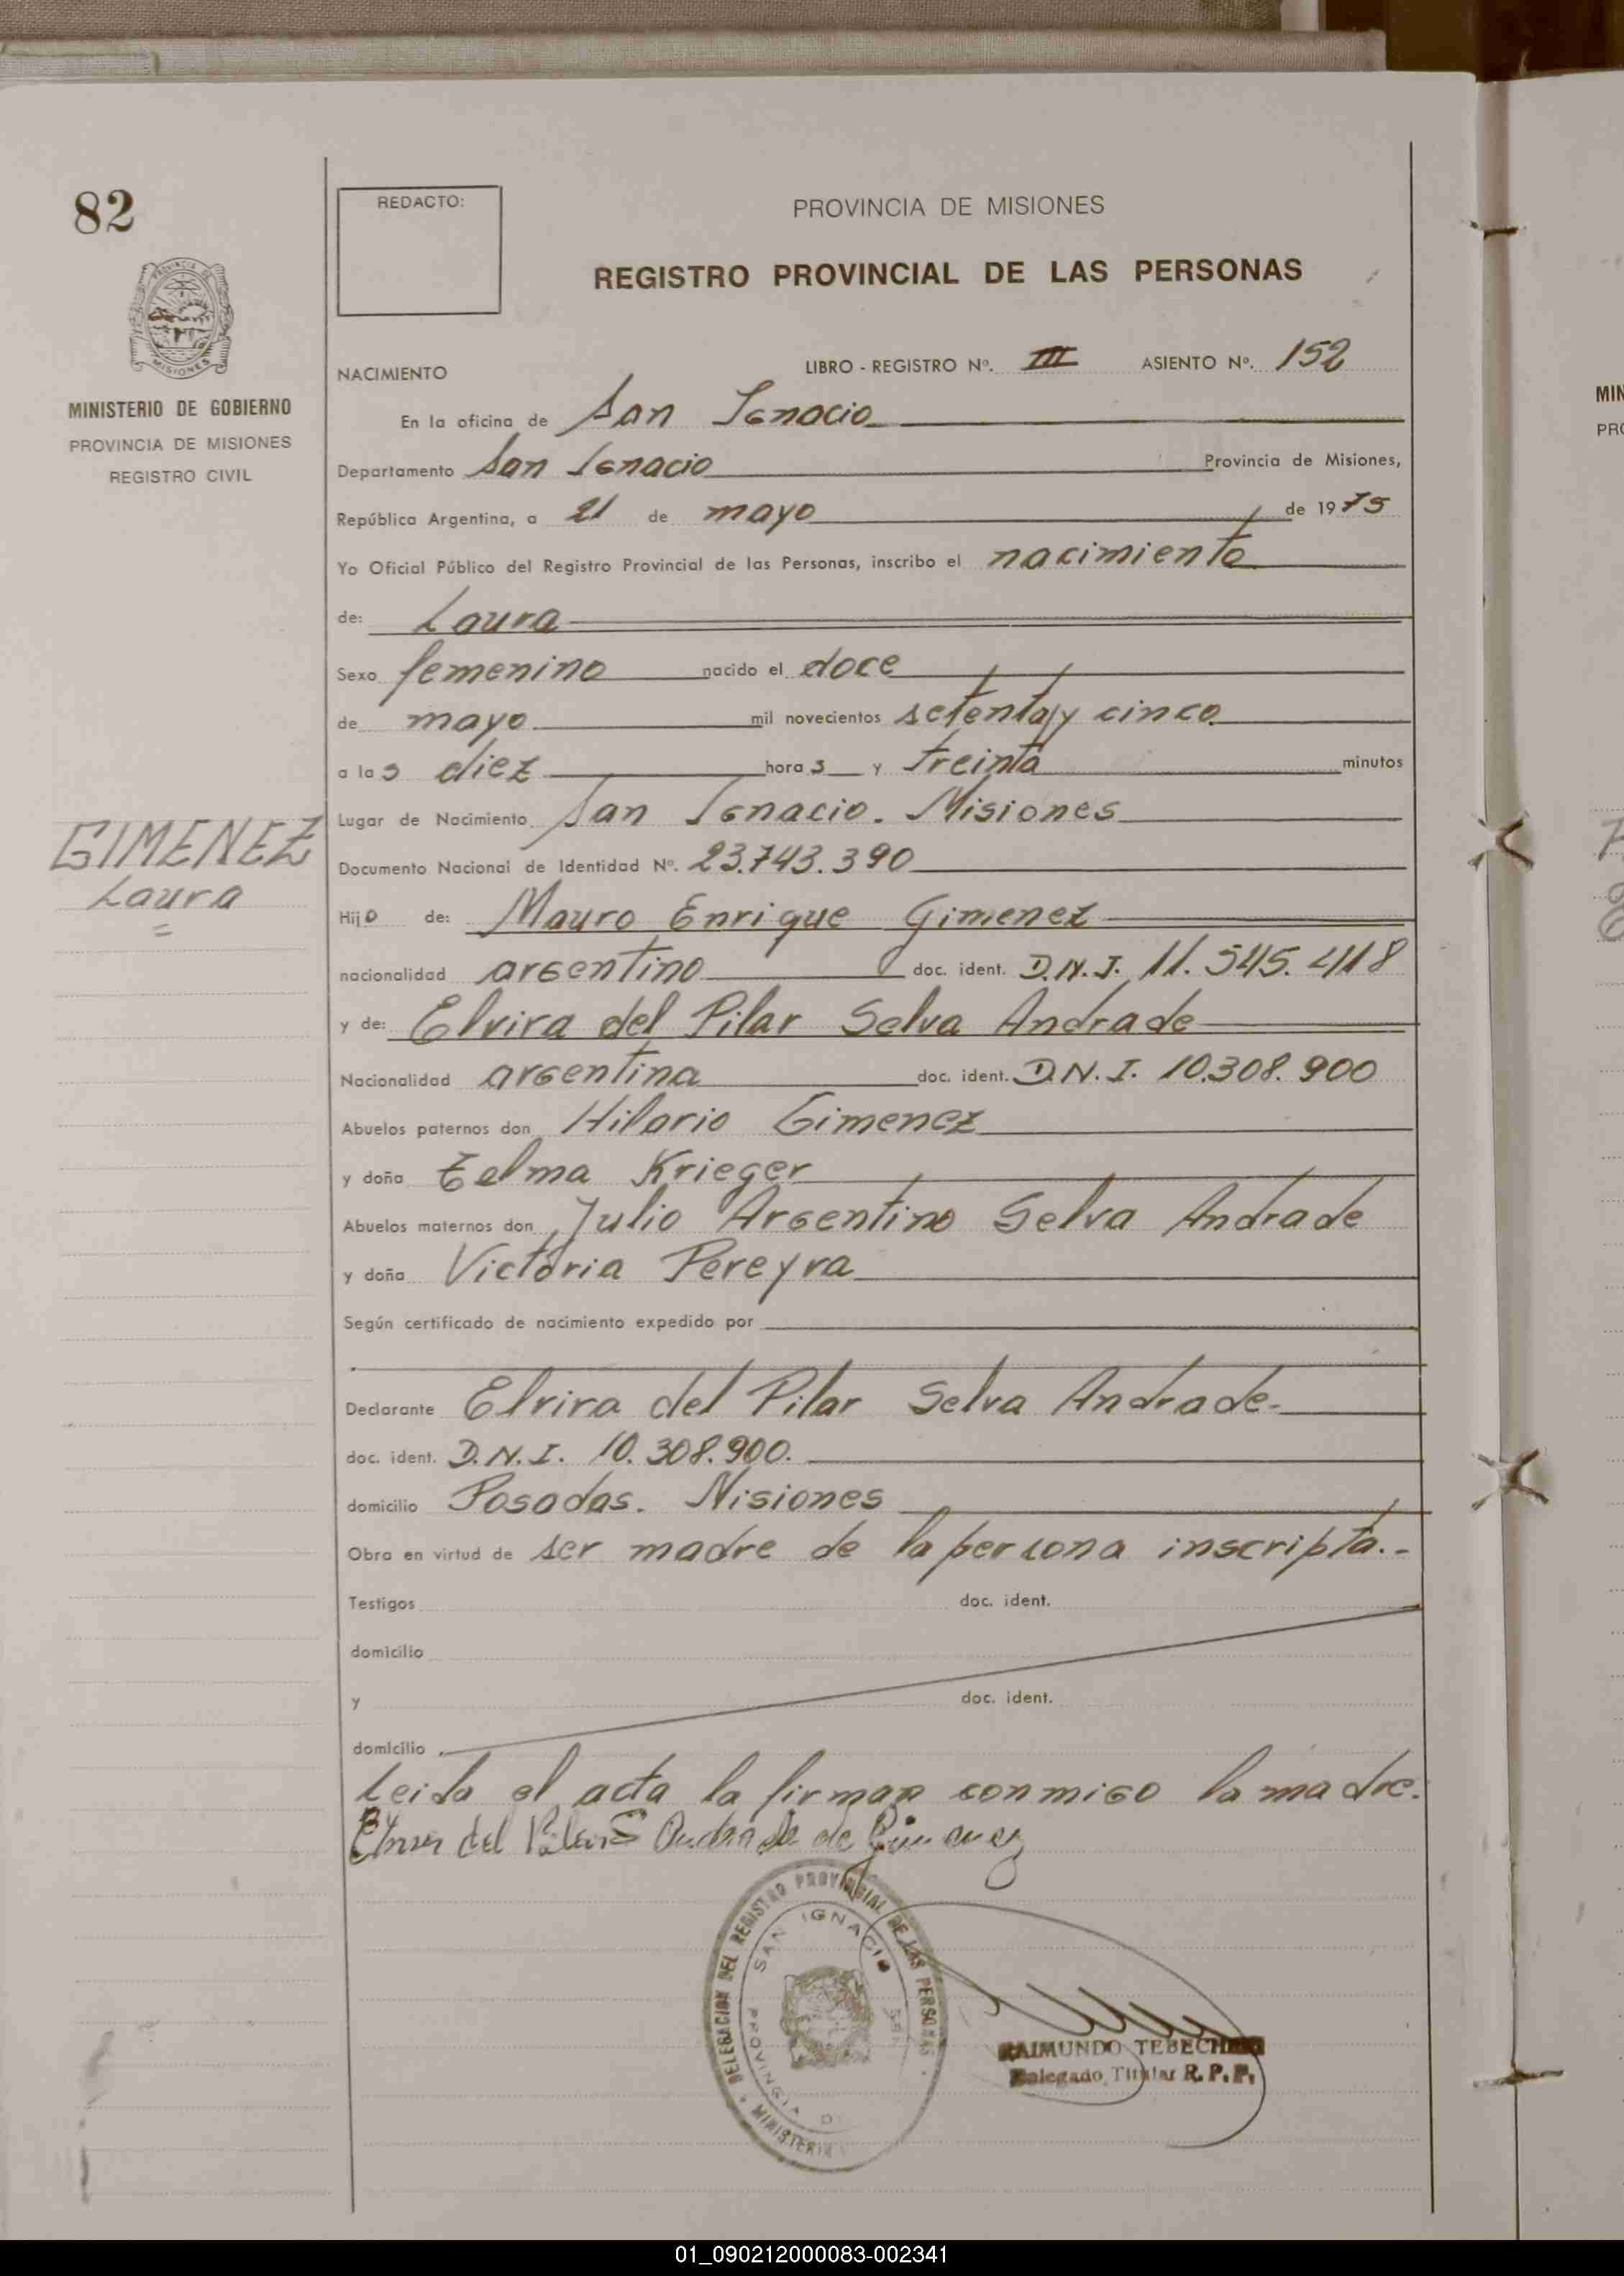 82
MINISTERIO DE GOBIERNO
PROVINCIA DE MISIONES
REGISTRO CIVIL
GIMENEZ
Laura
REDACTO:
PROVINCIA DE MISIONES
REGISTRO PROVINCIAL DE LAS PERSONAS
NACIMIENTO LIBRO - REGISTRO Nº. III ASIENTO Nº. 152
En la oficina de San Ignacio
Departamento San Ignacio Provincia de Misiones,
República Argentina, a 21 de mayo de 1975
Yo Oficial Público del Registro Provincial de las Personas, inscribo el nacimiento
de: Laura
Sexo femenino nacido el doce
de mayo mil novecientos setenta y cinco
a las diez horas y treinta minutos
Lugar de Nacimiento San Ignacio. Misiones
Documento Nacional de Identidad Nº. 23.743.390
Hijo de: Mauro Enrique Gimenez
nacionalidad argentino doc. ident. D.N.I. 11.545.418
y de: Elvira del Pilar Selva Andrade
Nacionalidad argentina doc. ident. D.N.I. 10.308.900
Abuelos paternos don Hilario Gimenez
y doña Telma Krieger
Abuelos maternos don Julio Argentino Selva Andrade
y doña Victoria Pereyra
Según certificado de nacimiento expedido por
Declarante Elvira del Pilar Selva Andrade.
doc. ident. D.N.I. 10.308.900.
domicilio Posadas. Misiones
Obra en virtud de ser madre de la persona inscripta.-
Testigos doc. ident.
domicilio
y doc. ident.
domicilio
Leida el acta la firman conmigo la madre.
del Pilar S Andrade de Gimenez
DELEGACION DEL REGISTRO PROVINCIAL DE LAS PERSONAS
SAN IGNACIO
PROVINCIA D
MINISTERIO
RAIMUNDO TEBECH
Delegado Titular R. P. P.
01_090212000083-002341